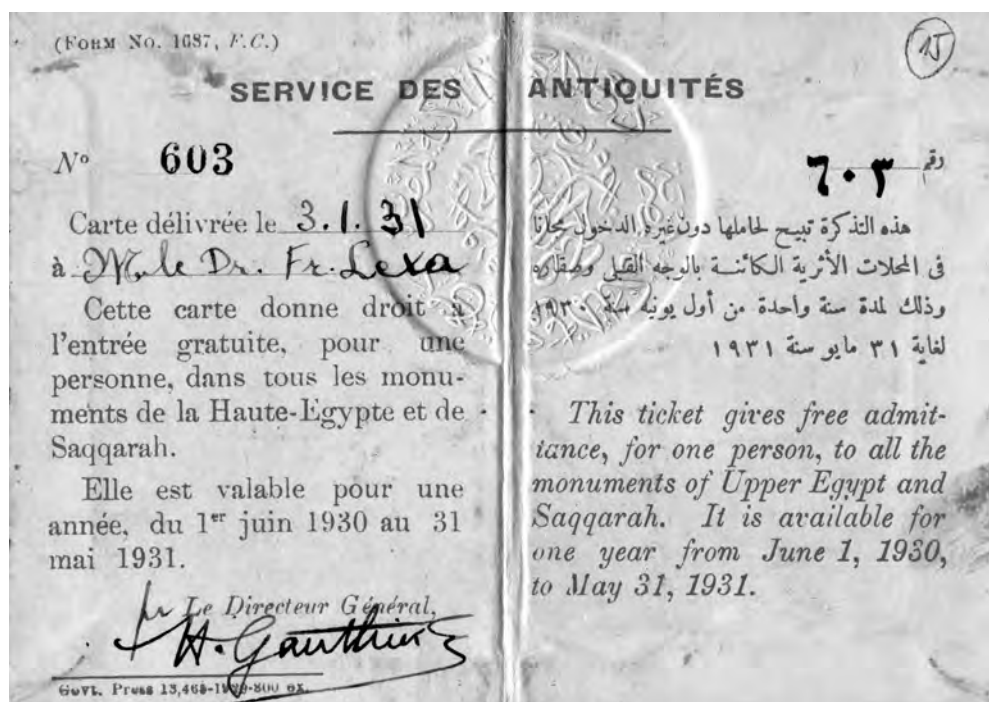 (FORM No. 1687, F.C.)
15
SERVICE DES ANTIQUITÉS
Nº 603
Carte délivrée le 3.1.31
à M. le Dr. Fr. Lexa
Cette carte donne droit à
l'entrée gratuite, pour une
personne, dans tous les monu-
ments de la Haute-Egypte et de
Saqqarah.
Elle est valable pour une
année, du 1er juin 1930 au 31
mai 1931.
Le Directeur Général,
H. Gauthier
Govt. Press 13,468-1929-800 ex.
رقم ٦٠٣
هذه التذكرة تبيح لحاملها دون غيره الدخول مجانا
فى المحلات الأثرية الكائنة بالوجه القبلى وصقاره
وذلك لمدة سنة واحدة من أول يونيه سنة ١٩٣٠
لغاية ٣١ مايو سنة ١٩٣١
This ticket gives free admit-
tance, for one person, to all the
monuments of Upper Egypt and
Saqqarah. It is available for
one year from June 1, 1930,
to May 31, 1931.